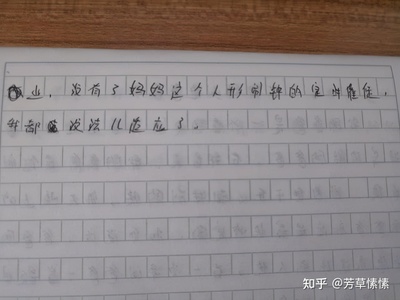 业，没有了妈妈这个人形闹钟的定时催促，
我都没法儿适应了。
知乎 @芳草愫愫